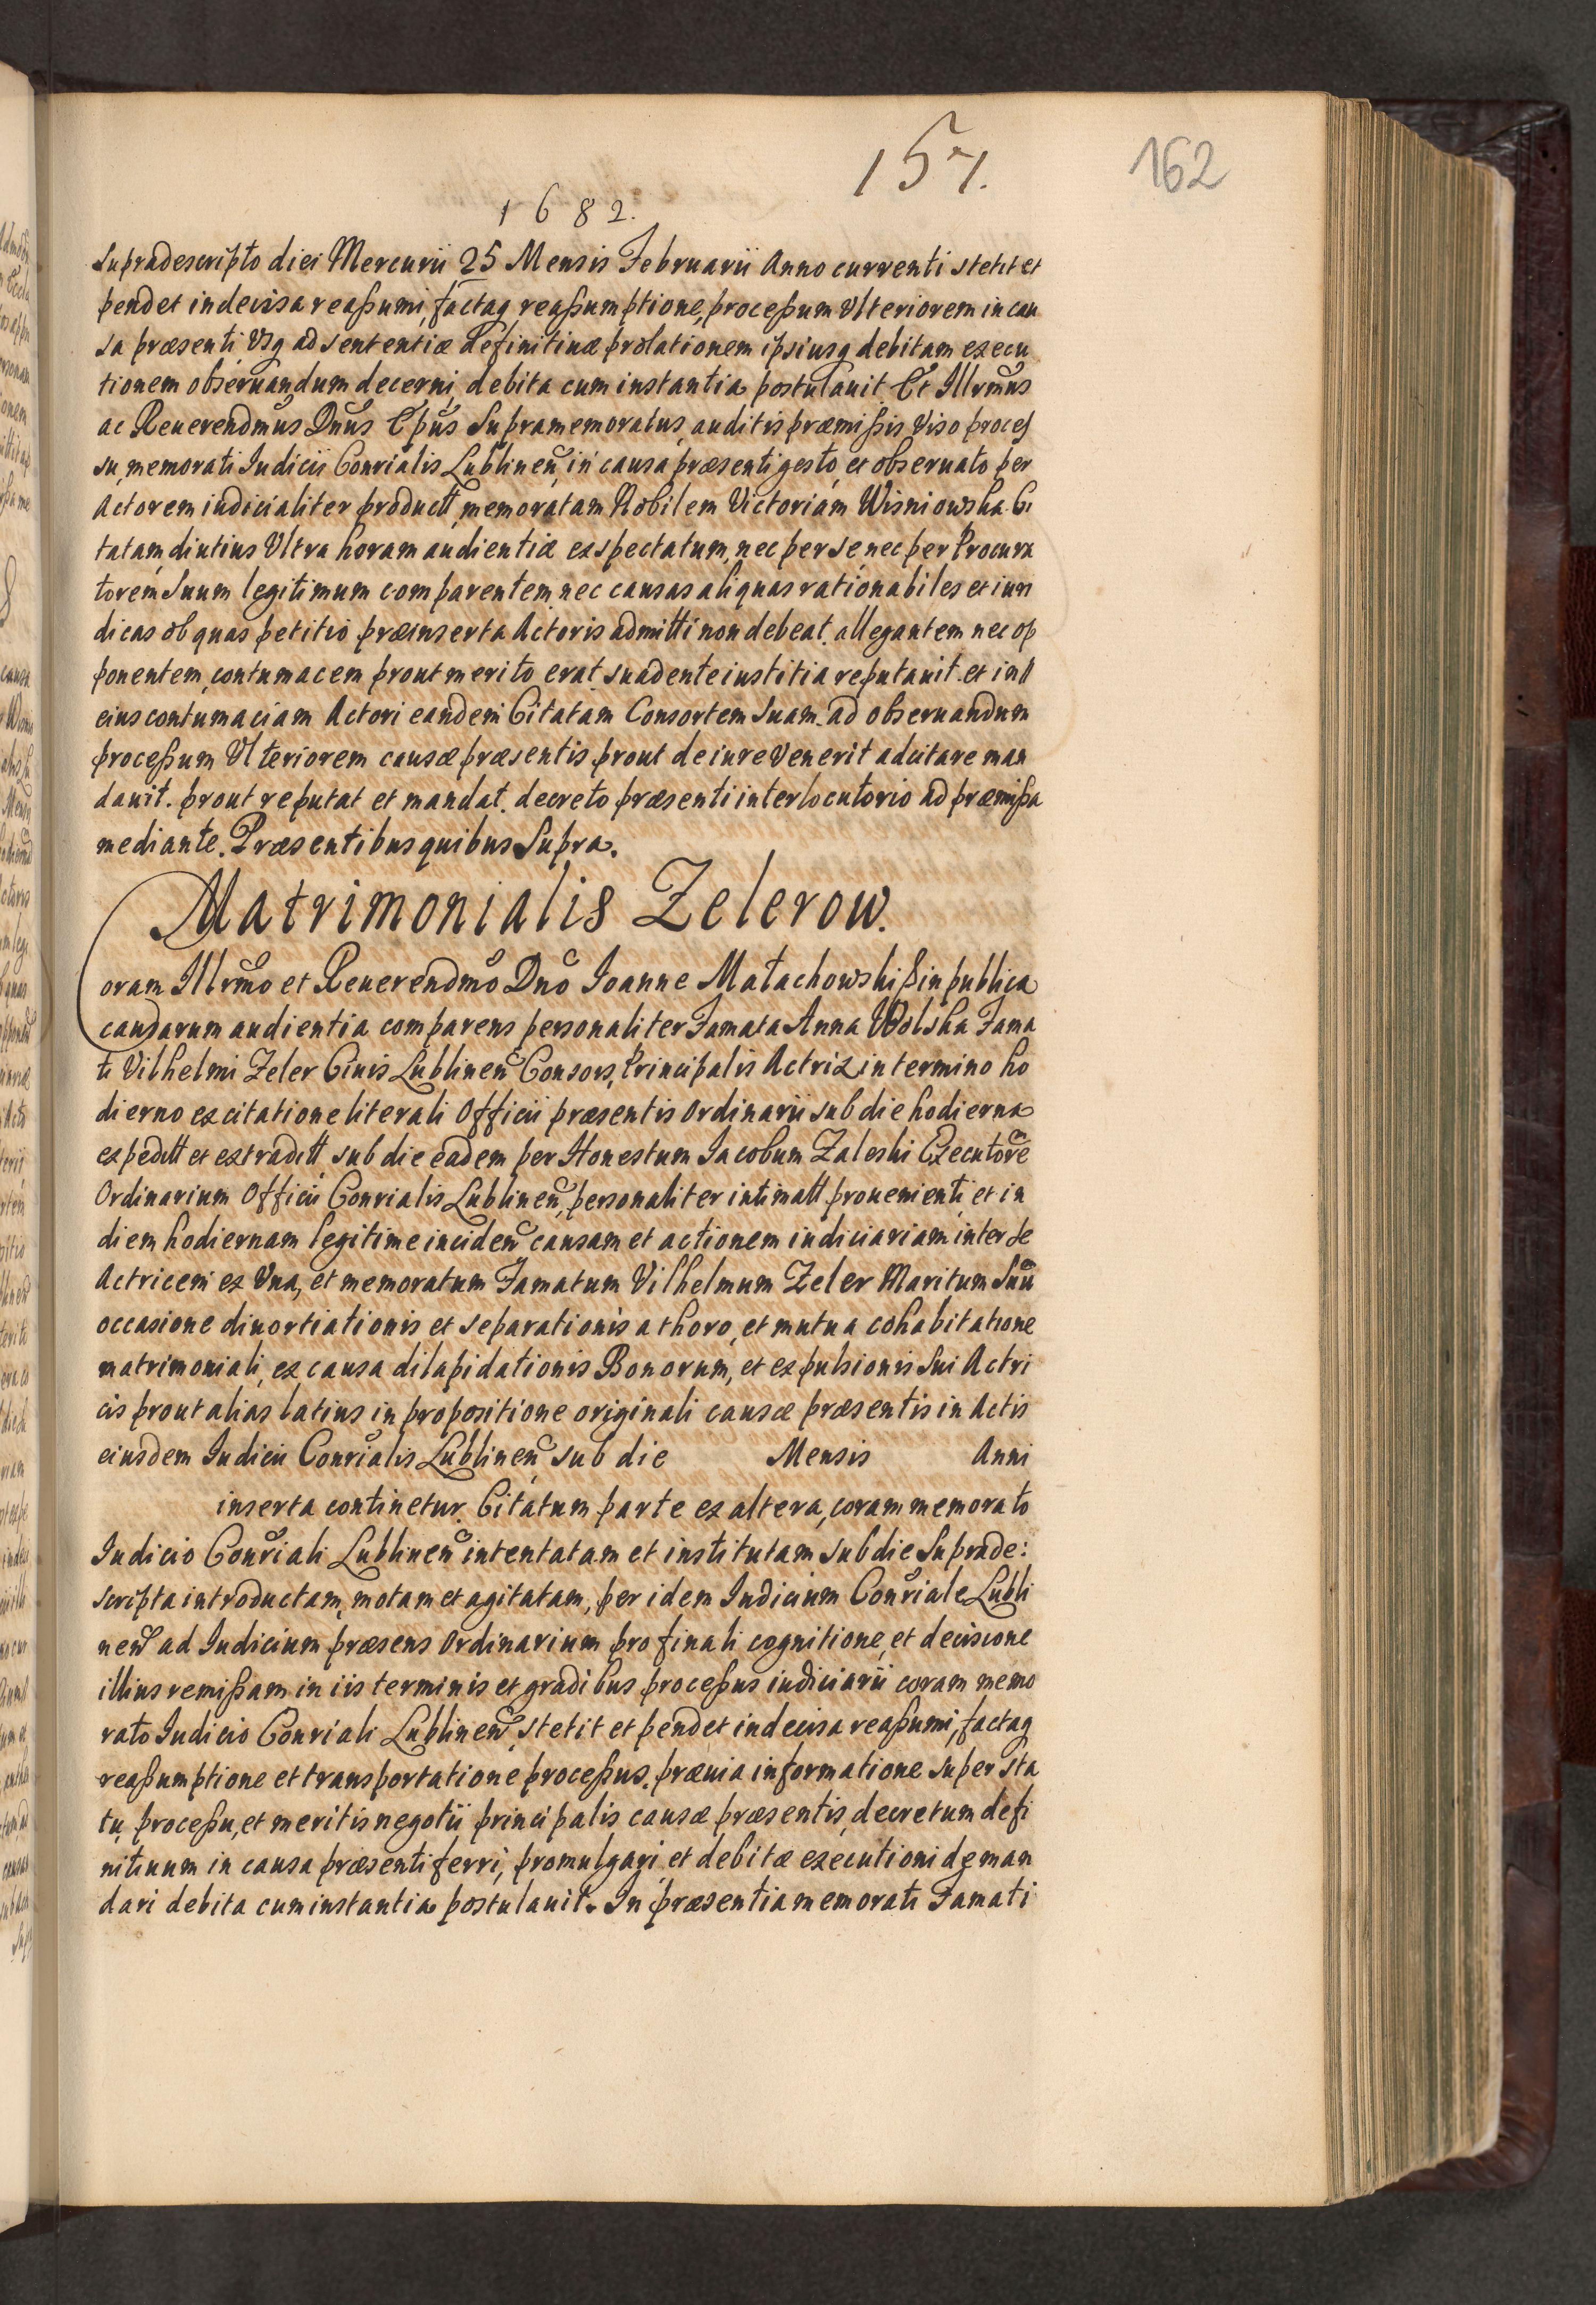 157.
162
1682.
supradescripto diei Mercurii 25 Mensis Februarii Anno currenti stetit et
pendet indecisa reaßumi, factaq reaßumptione, proceßum Ulteriorem in cau
sa præsenti Usq ad sententiæ definitiuæ prolationem ipsiusq debitam execu
tionem obseruandum decerni, debita cum instantia postulauit. Et Illrmus
ac Reuerendmus Dnus Epus Supramemoratus, auditis præmißis Viso proces
su, memorati Iudicii Conrialis Lublinen, in causa præsenti gesto, et obseruato per
Actorem iudicialiter productt, memoratam Nobilem Victoriam Wisniowska Ci
tatam, diutius Ultra horam audientiæ exspectatum, nec per se, nec per Procura
torem Suum legitimum comparentem, nec causas aliquas rationabiles et iuri
dicas ob quas petitio præinserta Actoris admitti non debeat, allegantem nec op
ponentem, contumacem prout merito erat suadente iustitia reputauit. et in
eius contumaciam Actori eandem Citatam Consortem Suam. ad obseruandum
proceßum Ulteriorem causæ præsentis prout de iure Venerit adcitare man
dauit. prout reputat et mandat. decreto præsenti interlocutorio ad præmißa
mediante. Præsentibus quibus Supra.
Matrimonialis Zelerow.
Coram Illrmo et Reuerendmo Dno Ioanne Małachowski in publica
causarum audientia comparens personaliter Famata Anna Wolska Fama
ti Vilhelmi Zeler Ciuis Lublinen Consors, Principalis Actrix in termino ho
dierno ex citatione literali Officii præsentis Ordinarii sub die hodierna
expeditt et extraditt, sub die eadem per Honestum Iacobum Zaleski Executore
Ordinarium Officii Conrialis Lublinen, personaliter intimatt prouenienti, et in
diem hodiernam legitime inciden causam et actionem iudiciariam inter se
Actricem ex Vna, et memoratum Famatum Vilhelmum Zeler Maritum Suu
occasione diuortiationis et separationis a thoro, et mutua cohabitatione
matrimoniali, ex causa dilapidationis Bonorum, et expulsionis Sui Actri
cis prout alias latius in propositione originali causæ præsentis in Actis
eiusdem Iudicii Conrialis Lublinen sub die Mensis Anni
inserta continetur. Citatum parte ex altera, coram memorato
Iudicio Conriali Lublinen intentatam et institutam sub die Suprade:
scripta introductam, motam et agitatam, per idem Iudicium Conriale Lubli
nen ad Iudicium præsens Ordinarium pro finali cognitione, et decisione
illius remißam in iis terminis et gradibus proceßus iudiciarii coram memo
rato Iudicio Conriali Lublinen, stetit et pendet indecisa reaßumi, factaq
reaßumptione et transportatione proceßus. præuia informatione super sta
tu, proceßu, et meritis negotii principalis causæ præsentis, decretum defi
nitiuum in causa præsenti ferri, promulgari, et debitæ executioni deman
dari debita cum instantia postulauit. In præsentia memorati Famati